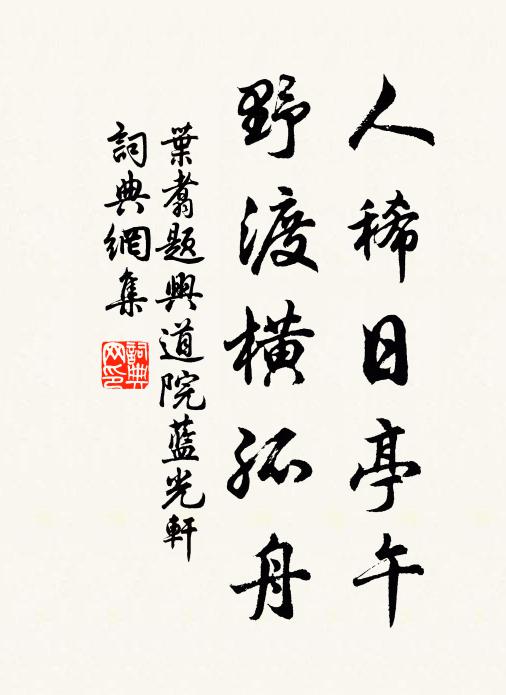 人稀日亭午
野渡橫孤舟
葉翥題興道院藍光軒
詞典網集
詞典網印